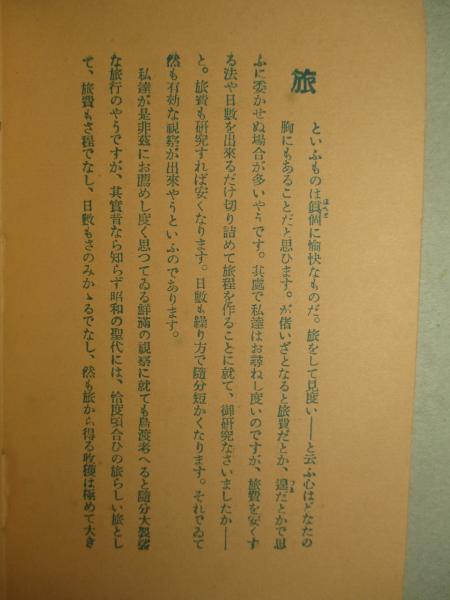 旅
といふものは眞個に愉快なものだ。旅をして見度い――と云ふ心はどなたの
胸にもあることだと思ひます。が偖いざとなると旅費だとか、遑だとかで思
ふに委かせぬ場合が多いやうです。其處で私達はお尋ねし度いのですが、旅費を安くす
る法や日數を出來るだけ切り詰めて旅程を作ることに就て、御研究なさいましたか――
と。旅費も研究すれば安くなります。日數も繰り方で隨分短かくなります。それでゐて
然も有効な視察が出來やうといふのであります。
私達が是非茲にお薦めし度く思つてゐる鮮滿の視察に就ても鳥渡考へると隨分大袈裟
な旅行のやうですが、其實昔なら知らず昭和の聖代には、恰度頃合ひの旅らしい旅とし
て、旅費もさ程でなし、日數もさのみかゝるでなし、然も旅から得る收獲は極めて大き